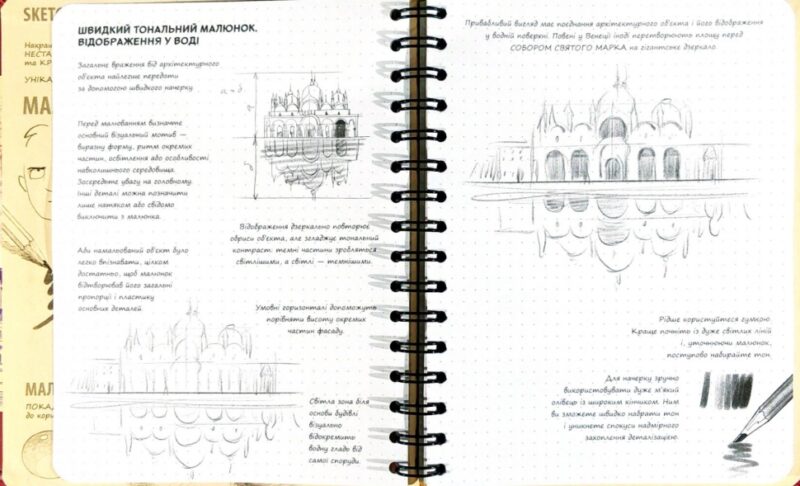 SKETC
НЕСТА
та КР
УНІКА
МА
МАЛ
ПОКАД
до кор
ШВИДКИЙ ТОНАЛЬНИЙ МАЛЮНОК.
ВІДОБРАЖЕННЯ У ВОДІ
Загальне враження від архітектурного
об'єкта найлегше передати
за допомогою швидкого начерку
Перед малюванням визначте
основний візуальний мотив —
виразну форму, ритм окремих
частин, освітлення або особливості
навколишнього середовища.
Зосередьте увагу на головному.
Інші деталі можна позначити
лише натяком або свідомо
виключити з малюнка.
Аби намальований об'єкт було
легко впізнавати, цілком
достатньо, щоб малюнок
відтворював його загальні
пропорції і пластику
основних деталей.
a = b
a
b
Відображення дзеркально повторює
обриси об'єкта, але згладжує тональний
контраст: темні частини зробляться
світлішими, а світлі — темнішими.
Умовні горизонталі допоможуть
порівняти висоту окремих
частин фасаду.
Світла зона біля
основи будівлі
візуально
відокремить
водну гладь від
самої споруди.
Привабливий вигляд має поєднання архітектурного об'єкта і його відображення
у водній поверхні. Повені у Венеції іноді перетворюють площу перед
СОБОРОМ СВЯТОГО МАРКА на гігантське дзеркало.
Рідше користуйтеся гумкою.
Краще почніть із дуже світлих ліній
і, уточнюючи малюнок,
поступово набирайте тон.
Для начерку зручно
використовувати дуже м'який
олівець із широким кінчиком. Ним
ви зможете швидко набрати тон
і уникнете спокуси надмірного
захоплення деталізацією.